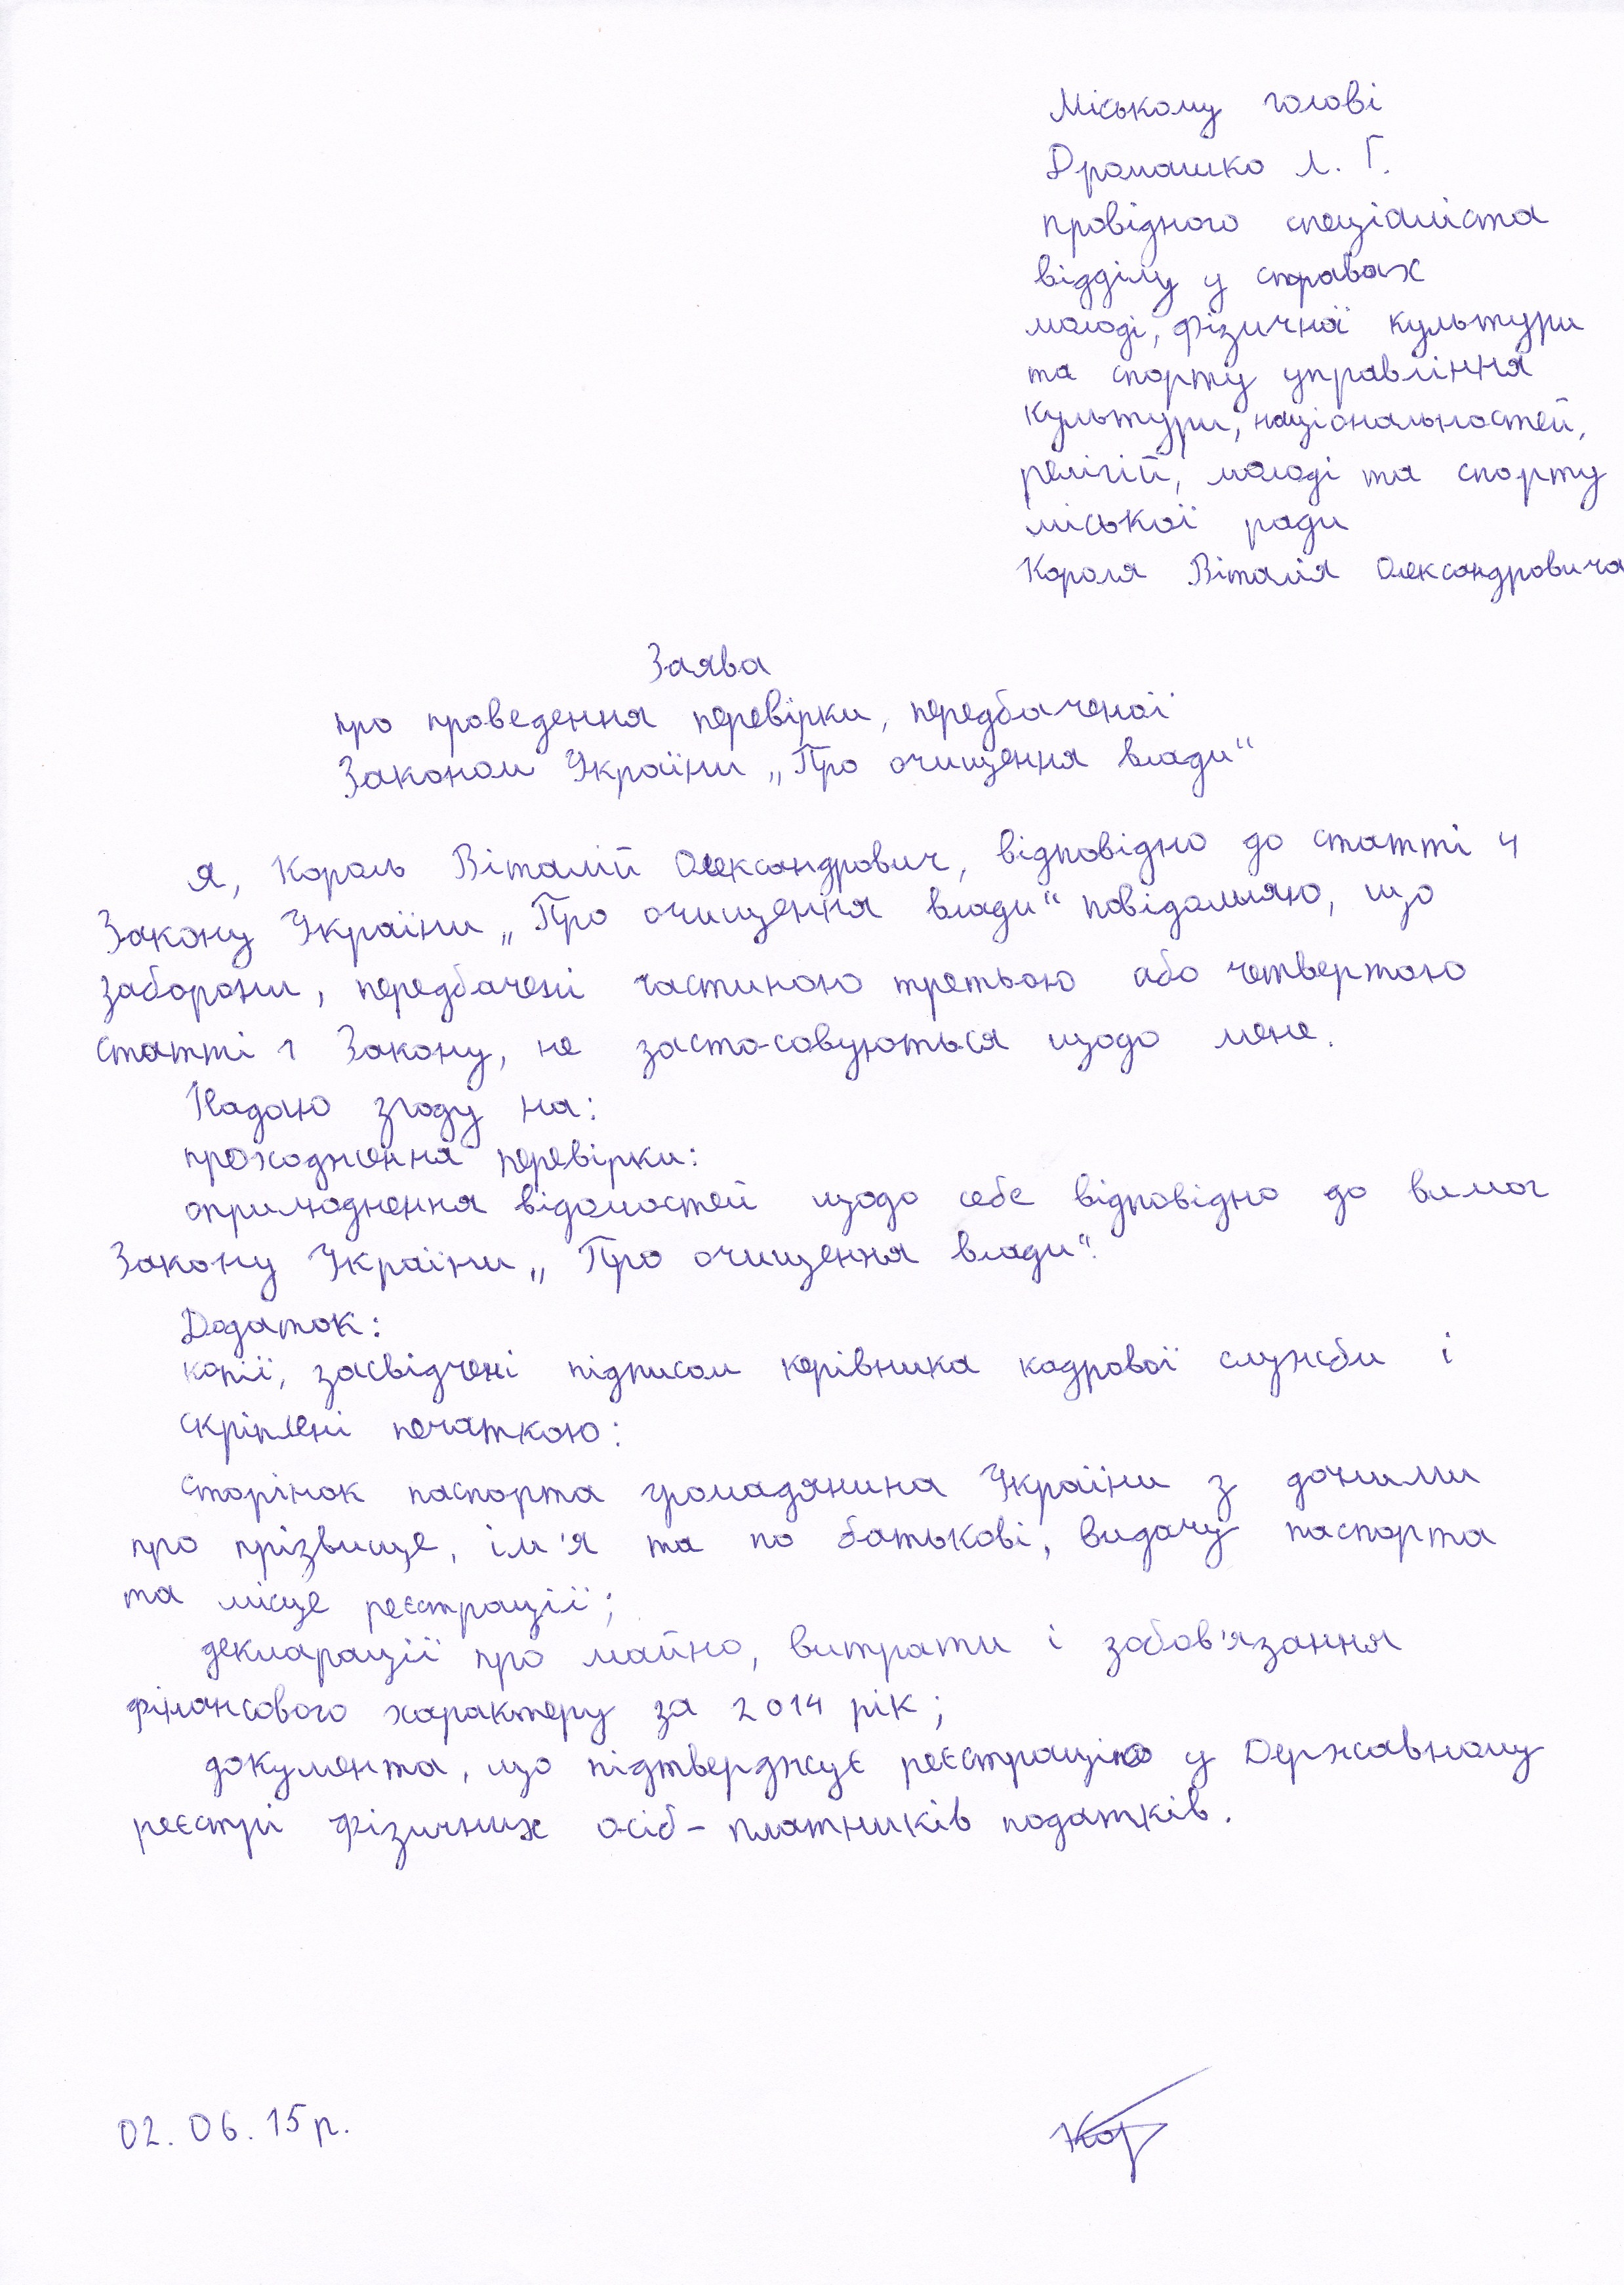 Міському голові
Дромашко Л. Г.
провідного спеціаліста
відділу у справах
молоді, фізичної культури
та спорту управління
культури, національностей,
релігій, молоді та спорту
міської ради
Короля Віталія Олександровича
Заява
про проведення перевірки, передбаченої
Законом України „Про очищення влади“
Я, Король Віталій Олександрович, відповідно до статті 4
Закону України „Про очищення влади“ повідомляю, що
заборони, передбачені частиною третьою або четвертою
статті 1 Закону, не засто-совуються щодо мене.
Надаю згоду на:
проходження перевірки:
оприлюднення відомостей щодо себе відповідно до вимог
Закону України „Про очищення влади“.
Додаток:
копії, засвідчені підписом керівника кадрової служби і
скріплені печаткою:
сторінок паспорта громадянина України з даними
про прізвище, ім'я та по батькові, видачу паспорта
та місце реєстрації;
декларації про майно, витрати і зобов'язання
фінансового характеру за 2014 рік;
документа, що підтверджує реєстрацію у Державному
реєстрі фізичних осіб - платників податків.
02. 06. 15 р.
Кор